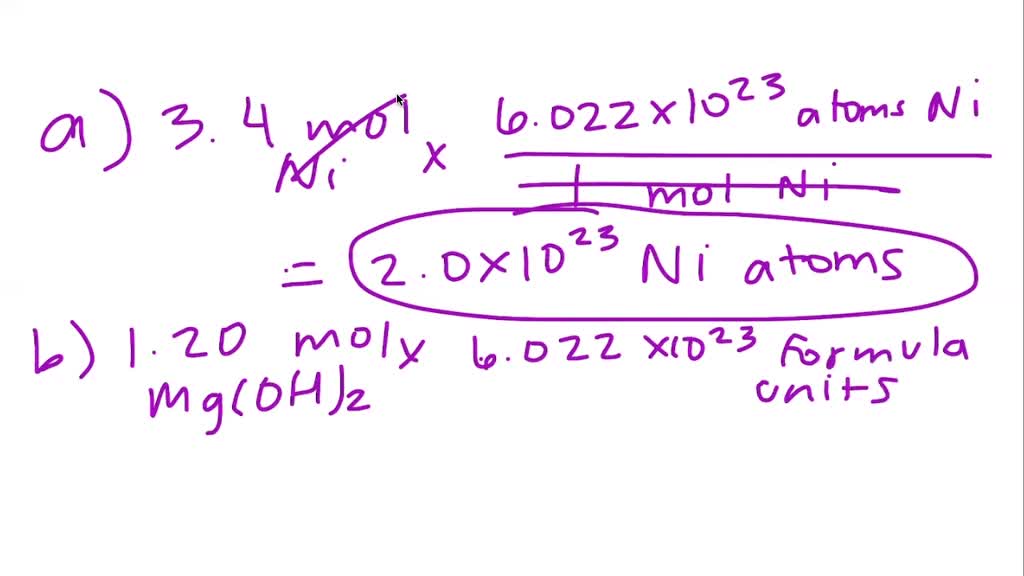 a) 3.4 mol Ni x 6.022 x 10^23 atoms Ni
1 mol Ni
= 2.0 x 10^23 Ni atoms
b) 1.20 mol x 6.022 x 10^23 Formula
Mg(OH)2 units